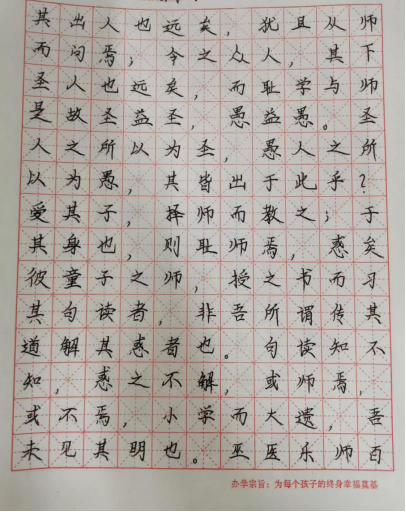 其出人也远矣，犹且从师
而问焉；今之众人，其下
圣人也远矣，而耻学与师
是故圣益圣，愚益愚。圣
人之所以为圣，愚人之所
以为愚，其皆出于此乎？
爱其子，择师而教之；于
其身也，则耻师焉，惑矣
彼童子之师，授之书而习
其句读者，非吾所谓传其
道解其惑者也。句读知不
知，惑之不解，或师焉，
或不焉，小学而大遗，吾
未见其明也。巫医乐师百
办学宗旨：为每个孩子的终身幸福奠基